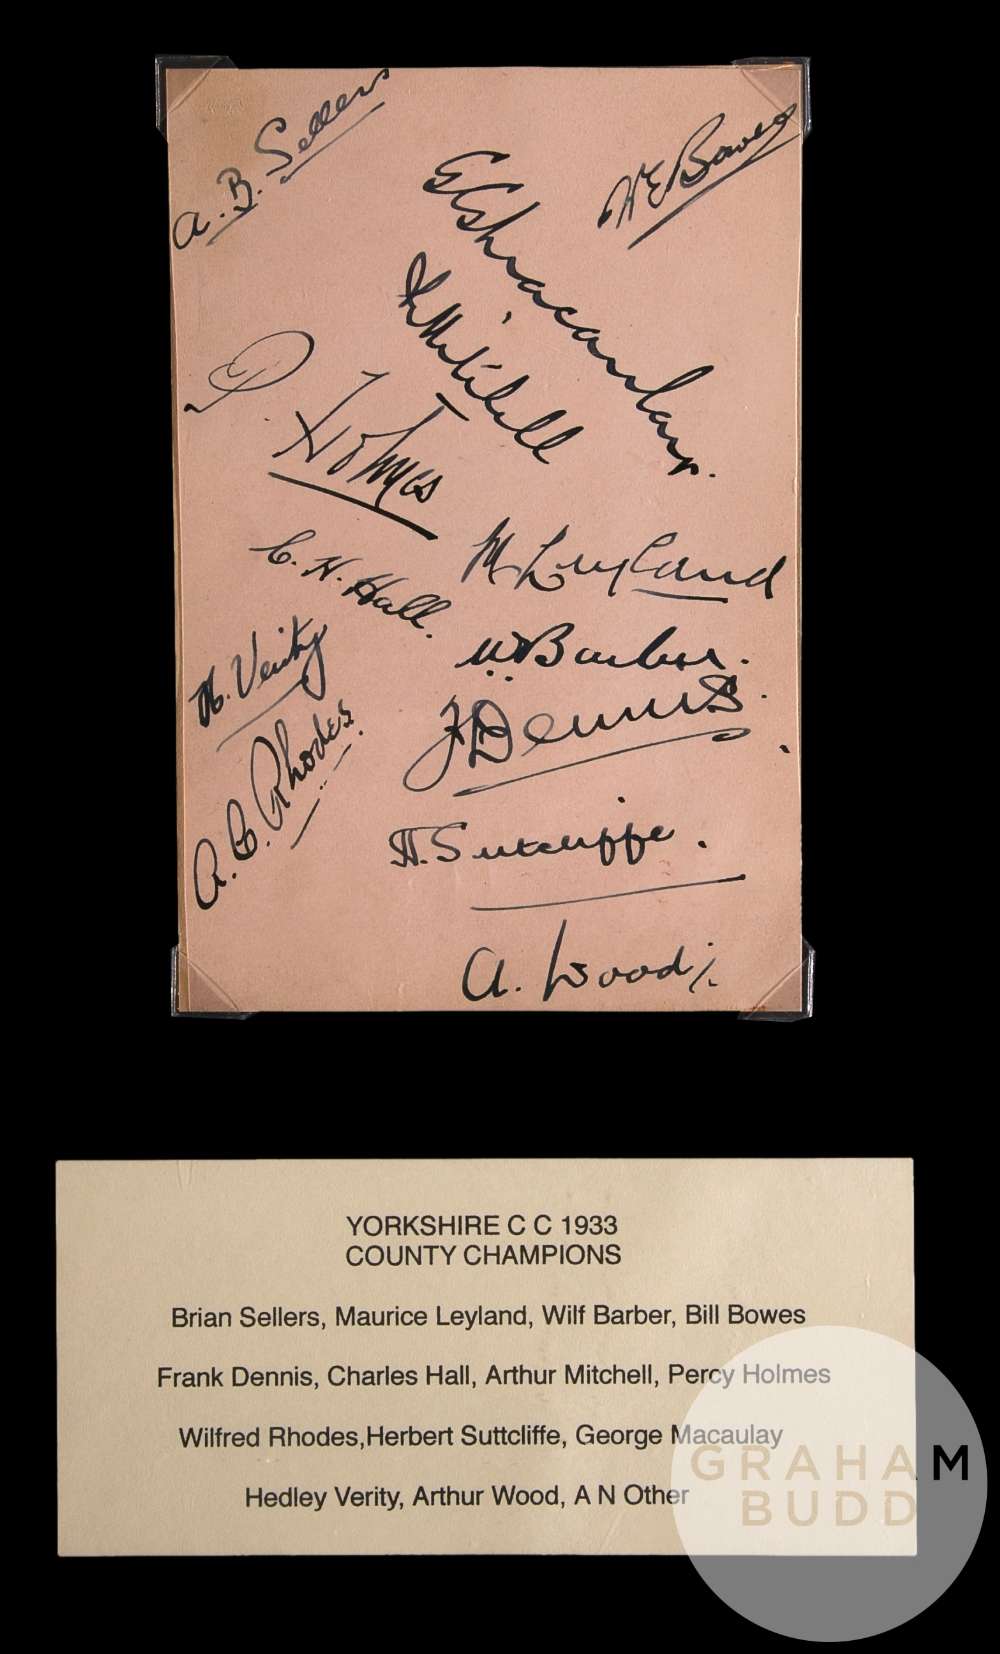 A. B. Sellers
W E Bowes
G G Macaulay.
A. Mitchell
P Holmes
M Leyland
C. H. Hall.
W Barber.
H. Verity
F Dennis.
A. C. Rhodes.
H. Sutcliffe.
A. Wood
YORKSHIRE C C 1933
COUNTY CHAMPIONS
Brian Sellers, Maurice Leyland, Wilf Barber, Bill Bowes
Frank Dennis, Charles Hall, Arthur Mitchell, Percy Holmes
Wilfred Rhodes,Herbert Suttcliffe, George Macaulay
Hedley Verity, Arthur Wood, A N Other
GRAHAM
BUDD